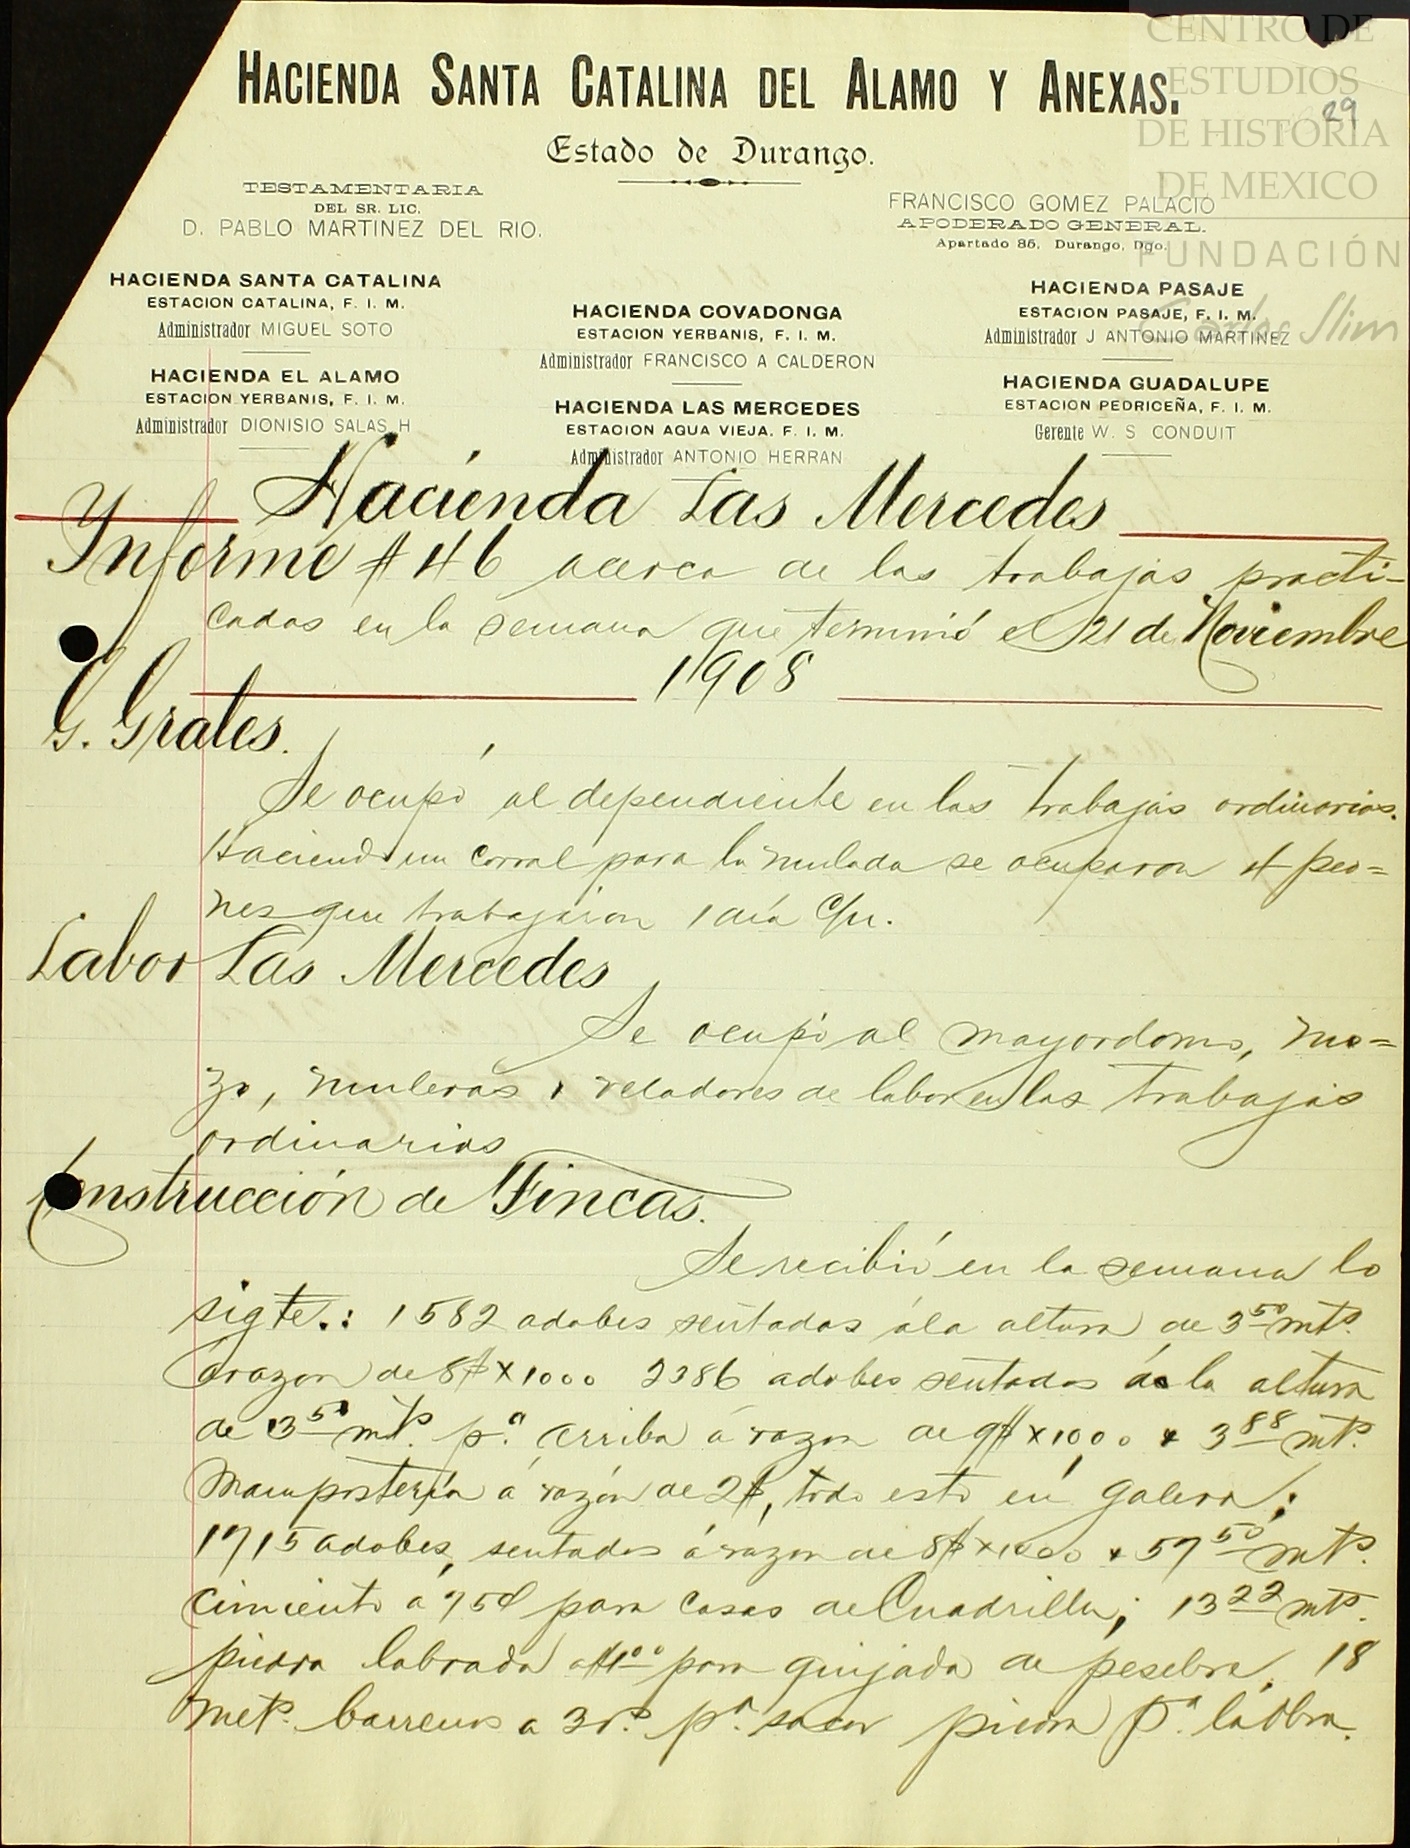 CENTRO DE
ESTUDIOS
DE HISTORIA
DE MEXICO
FUNDACIÓN
Carlos Slim
29
HACIENDA SANTA CATALINA DEL ALAMO Y ANEXAS.
Estado de Durango.
TESTAMENTARIA
DEL SR. LIC.
D. PABLO MARTINEZ DEL RIO.
FRANCISCO GOMEZ PALACIO
APODERADO GENERAL.
Apartado 86. Durango, Dgo.
HACIENDA SANTA CATALINA
ESTACION CATALINA, F. I. M.
Administrador MIGUEL SOTO
HACIENDA EL ALAMO
ESTACION YERBANIS, F. I. M.
Administrador DIONISIO SALAS H
HACIENDA COVADONGA
ESTACION YERBANIS, F. I. M.
Administrador FRANCISCO A CALDERON
HACIENDA LAS MERCEDES
ESTACION AGUA VIEJA. F. I. M.
Administrador ANTONIO HERRAN
HACIENDA PASAJE
ESTACION PASAJE, F. I. M.
Administrador J ANTONIO MARTINEZ
HACIENDA GUADALUPE
ESTACION PEDRICEÑA, F. I. M.
Gerente W. S. CONDUIT
Hacienda Las Mercedes
Informe # 46 acerca de los trabajos practi-
cados en la semana que terminó el 21 de Noviembre
1908
G. Grales.
Se ocupó al dependiente en los trabajos ordinarios.
Haciendo un corral para la mulada se ocuparon 4 peo=
nes que trabajaron 1 día c/u.
Labor Las Mercedes
Se ocupó al mayordomo, mo=
zo, muleros y veladores de labor en los trabajos
ordinarios
Construcción de Fincas.
Se recibió en la semana lo
sigte.: 1582 adobes sentados á la altura de 3 50 mts.
á razon de 8$ x 1000 2386 adobes sentados de la altura
de 3 50 mts. pa. arriba á razon de 9$ x 1000 y 3 88 mts.
mampostería á razón de 2$, todo esto en galera;
1715 adobes, sentados á razon de 8$ x 1000 y 57 50 mts.
cimiento á 75¢ para casas de Cuadrilla; 13 22 mts.
piedra labrada a $1 00 para quijada de pesebre, 18
mets. barrenos a 30 cs. pa. sacar piedra pa. la obra.